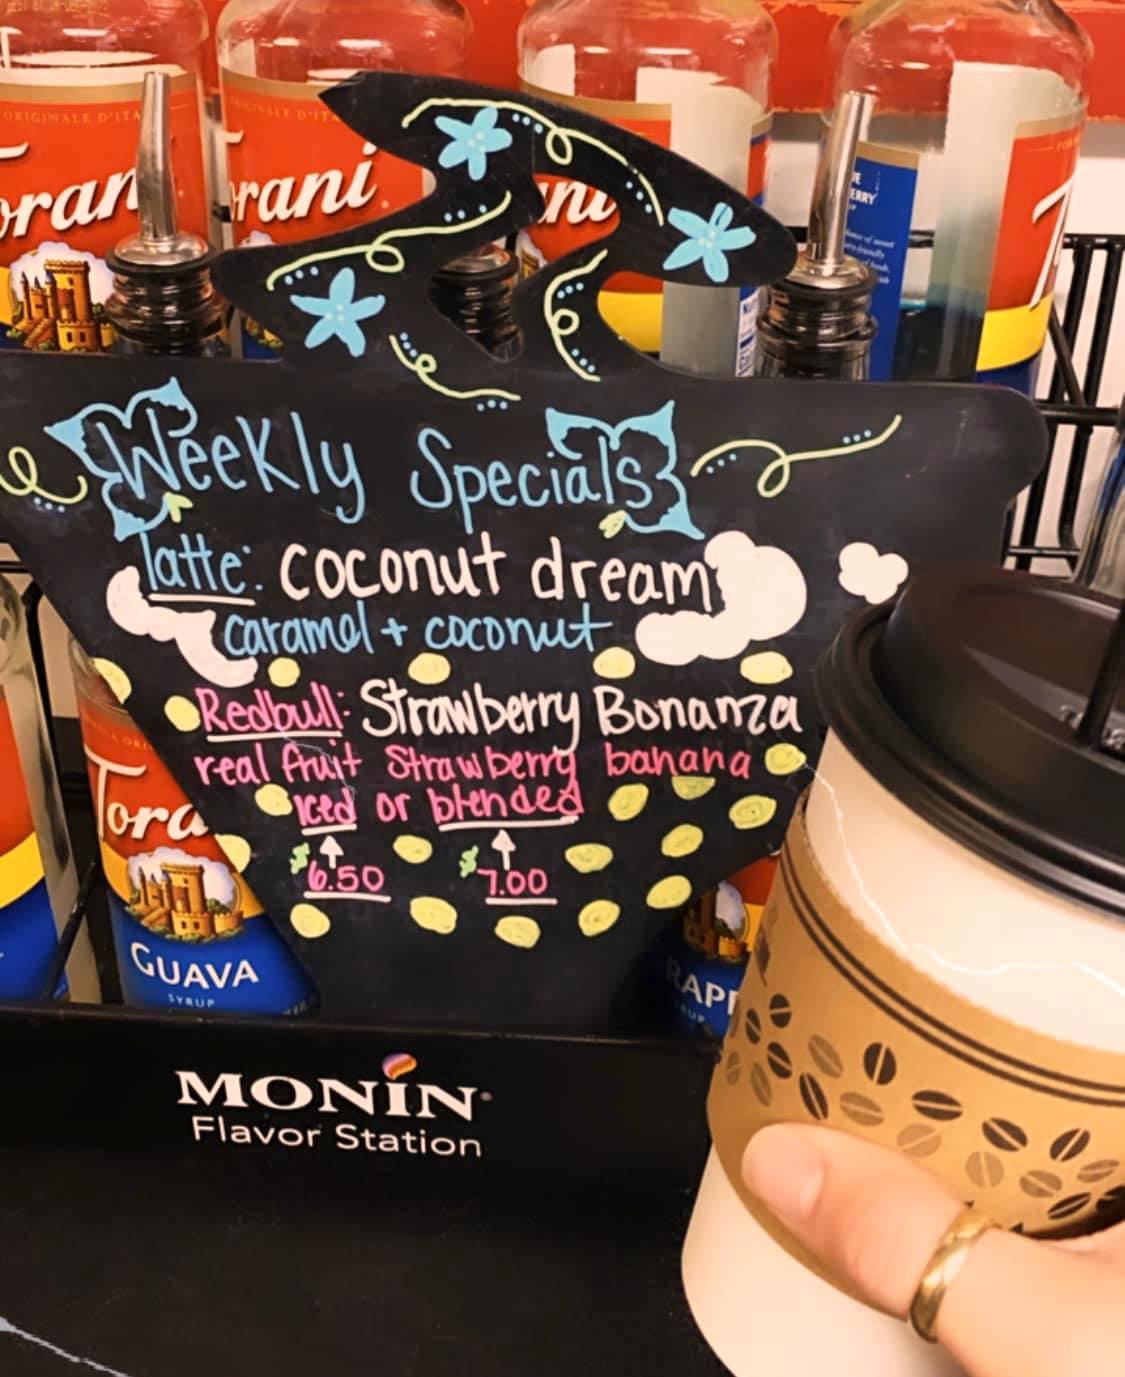 ORIGINALE D'ITA
Torani
Torani
Weekly Specials
latte: coconut dream
caramel + coconut
Redbull: Strawberry Bonanza
real fruit Strawberry banana
iced or blended
$6.50 $7.00
Torani
GUAVA
SYRUP
MONIN
Flavor Station